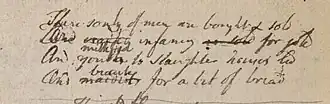 There souls of men are bought & sold
And infancy is sold for gold
milkfed
And youth to slaughter houses led
beauty
And maidens for a bit of bread